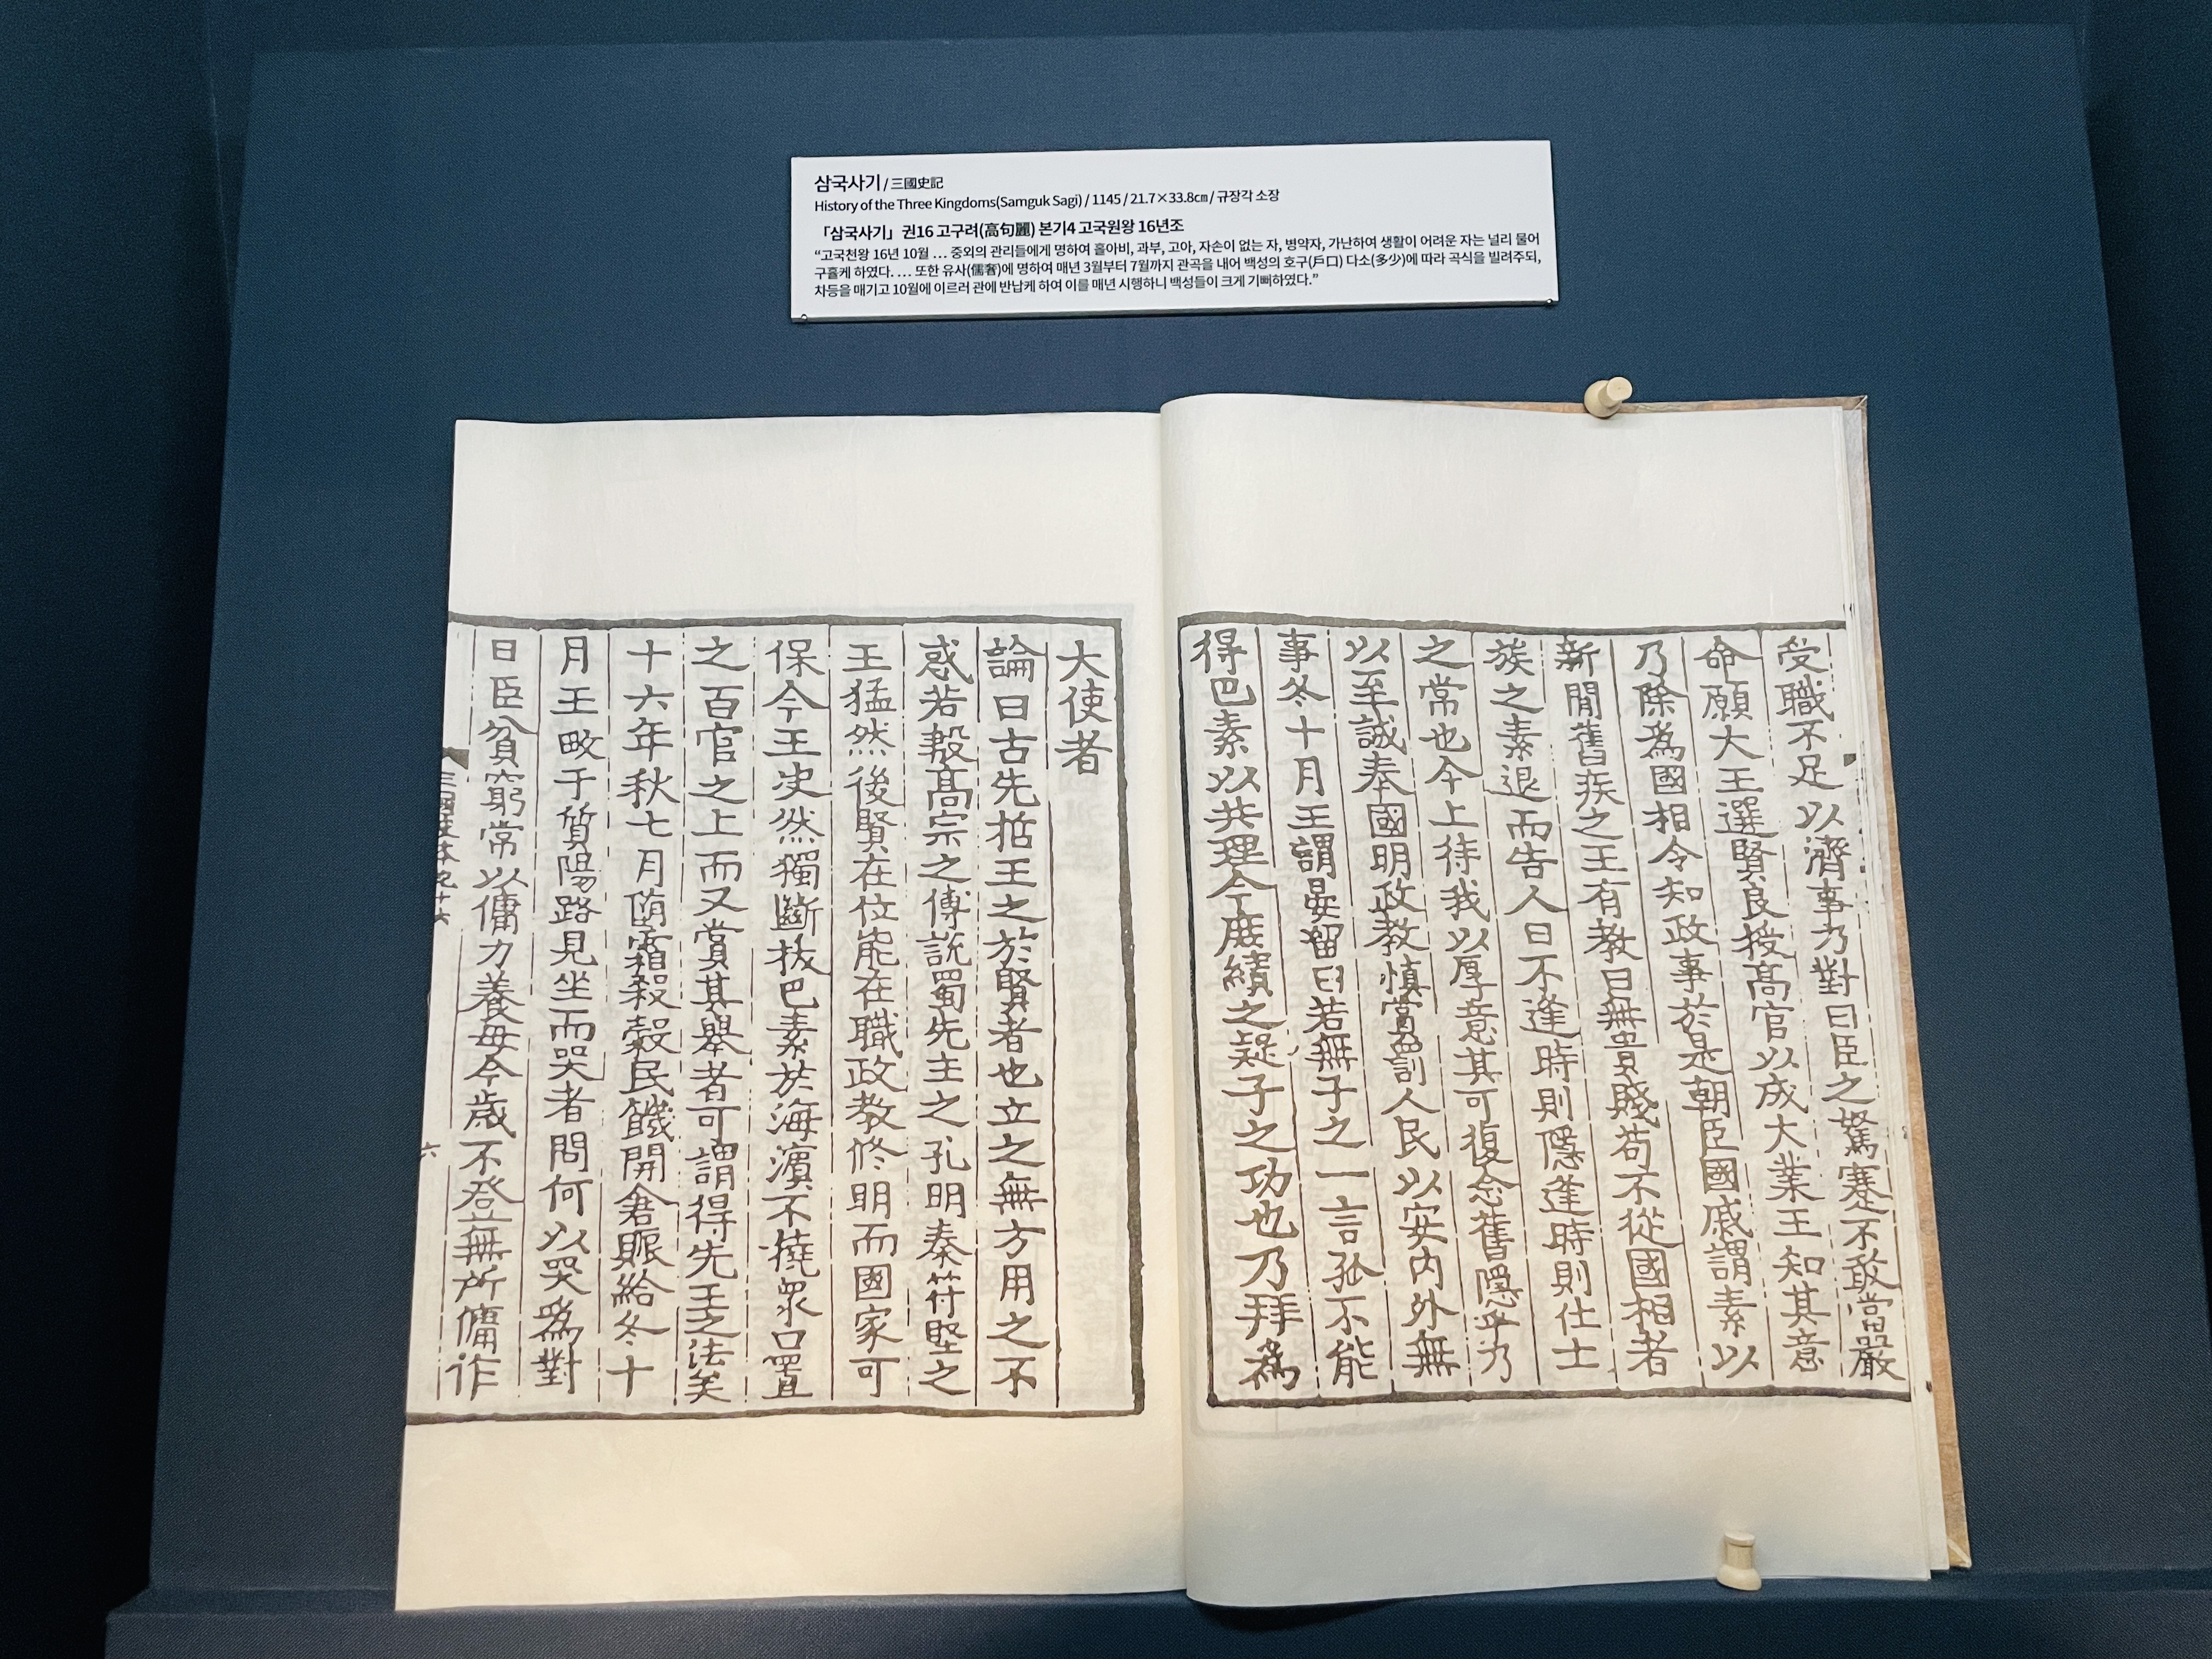 삼국사기 / 三國史記
History of the Three Kingdoms(Samguk Sagi) / 1145 / 21.7×33.8㎝ / 규장각 소장
「삼국사기」권16 고구려(高句麗) 본기4 고국원왕 16년조
“고국천왕 16년 10월 … 중외의 관리들에게 명하여 홀아비, 과부, 고아, 자손이 없는 자, 병약자, 가난하여 생활이 어려운 자는 널리 물어
구휼케 하였다. … 또한 유사(儒奢)에 명하여 매년 3월부터 7월까지 관곡을 내어 백성의 호구(戶口) 다소(多少)에 따라 곡식을 빌려주되,
차등을 매기고 10월에 이르러 관에 반납케 하여 이를 매년 시행하니 백성들이 크게 기뻐하였다.”
受職不足以濟事乃對曰臣之駑蹇不敢當嚴
命願大王選賢良授高官以成大業王知其意
乃除爲國相令知政事於是朝臣國戚謂素以
新閒舊疾之王有教曰無貴賤苟不從國相者
族之素退而告人曰不逢時則隱逢時則仕士
之常也今上待我以厚意其可復念舊隱乎乃
以至誠奉國明政教慎賞罰人民以安內外無
事冬十月王謂晏留曰若無子之一言孤不能
得巴素以共理今庶績之凝子之功也乃拜爲
大使者
論曰古先哲王之於賢者也立之無方用之不
惑若殷高宗之傅說蜀先主之孔明秦苻堅之
王猛然後賢在位能在職政教修明而國家可
保今王決然獨斷拔巴素於海濱不撓衆口置
之百官之上而又賞其舉者可謂得先王之法矣
十六年秋七月墮霜殺穀民饑開倉賑給冬十
月王畋于質陽路見坐而哭者問何以哭爲對
曰臣貧窮常以傭力養母今歲不登無所傭作
六